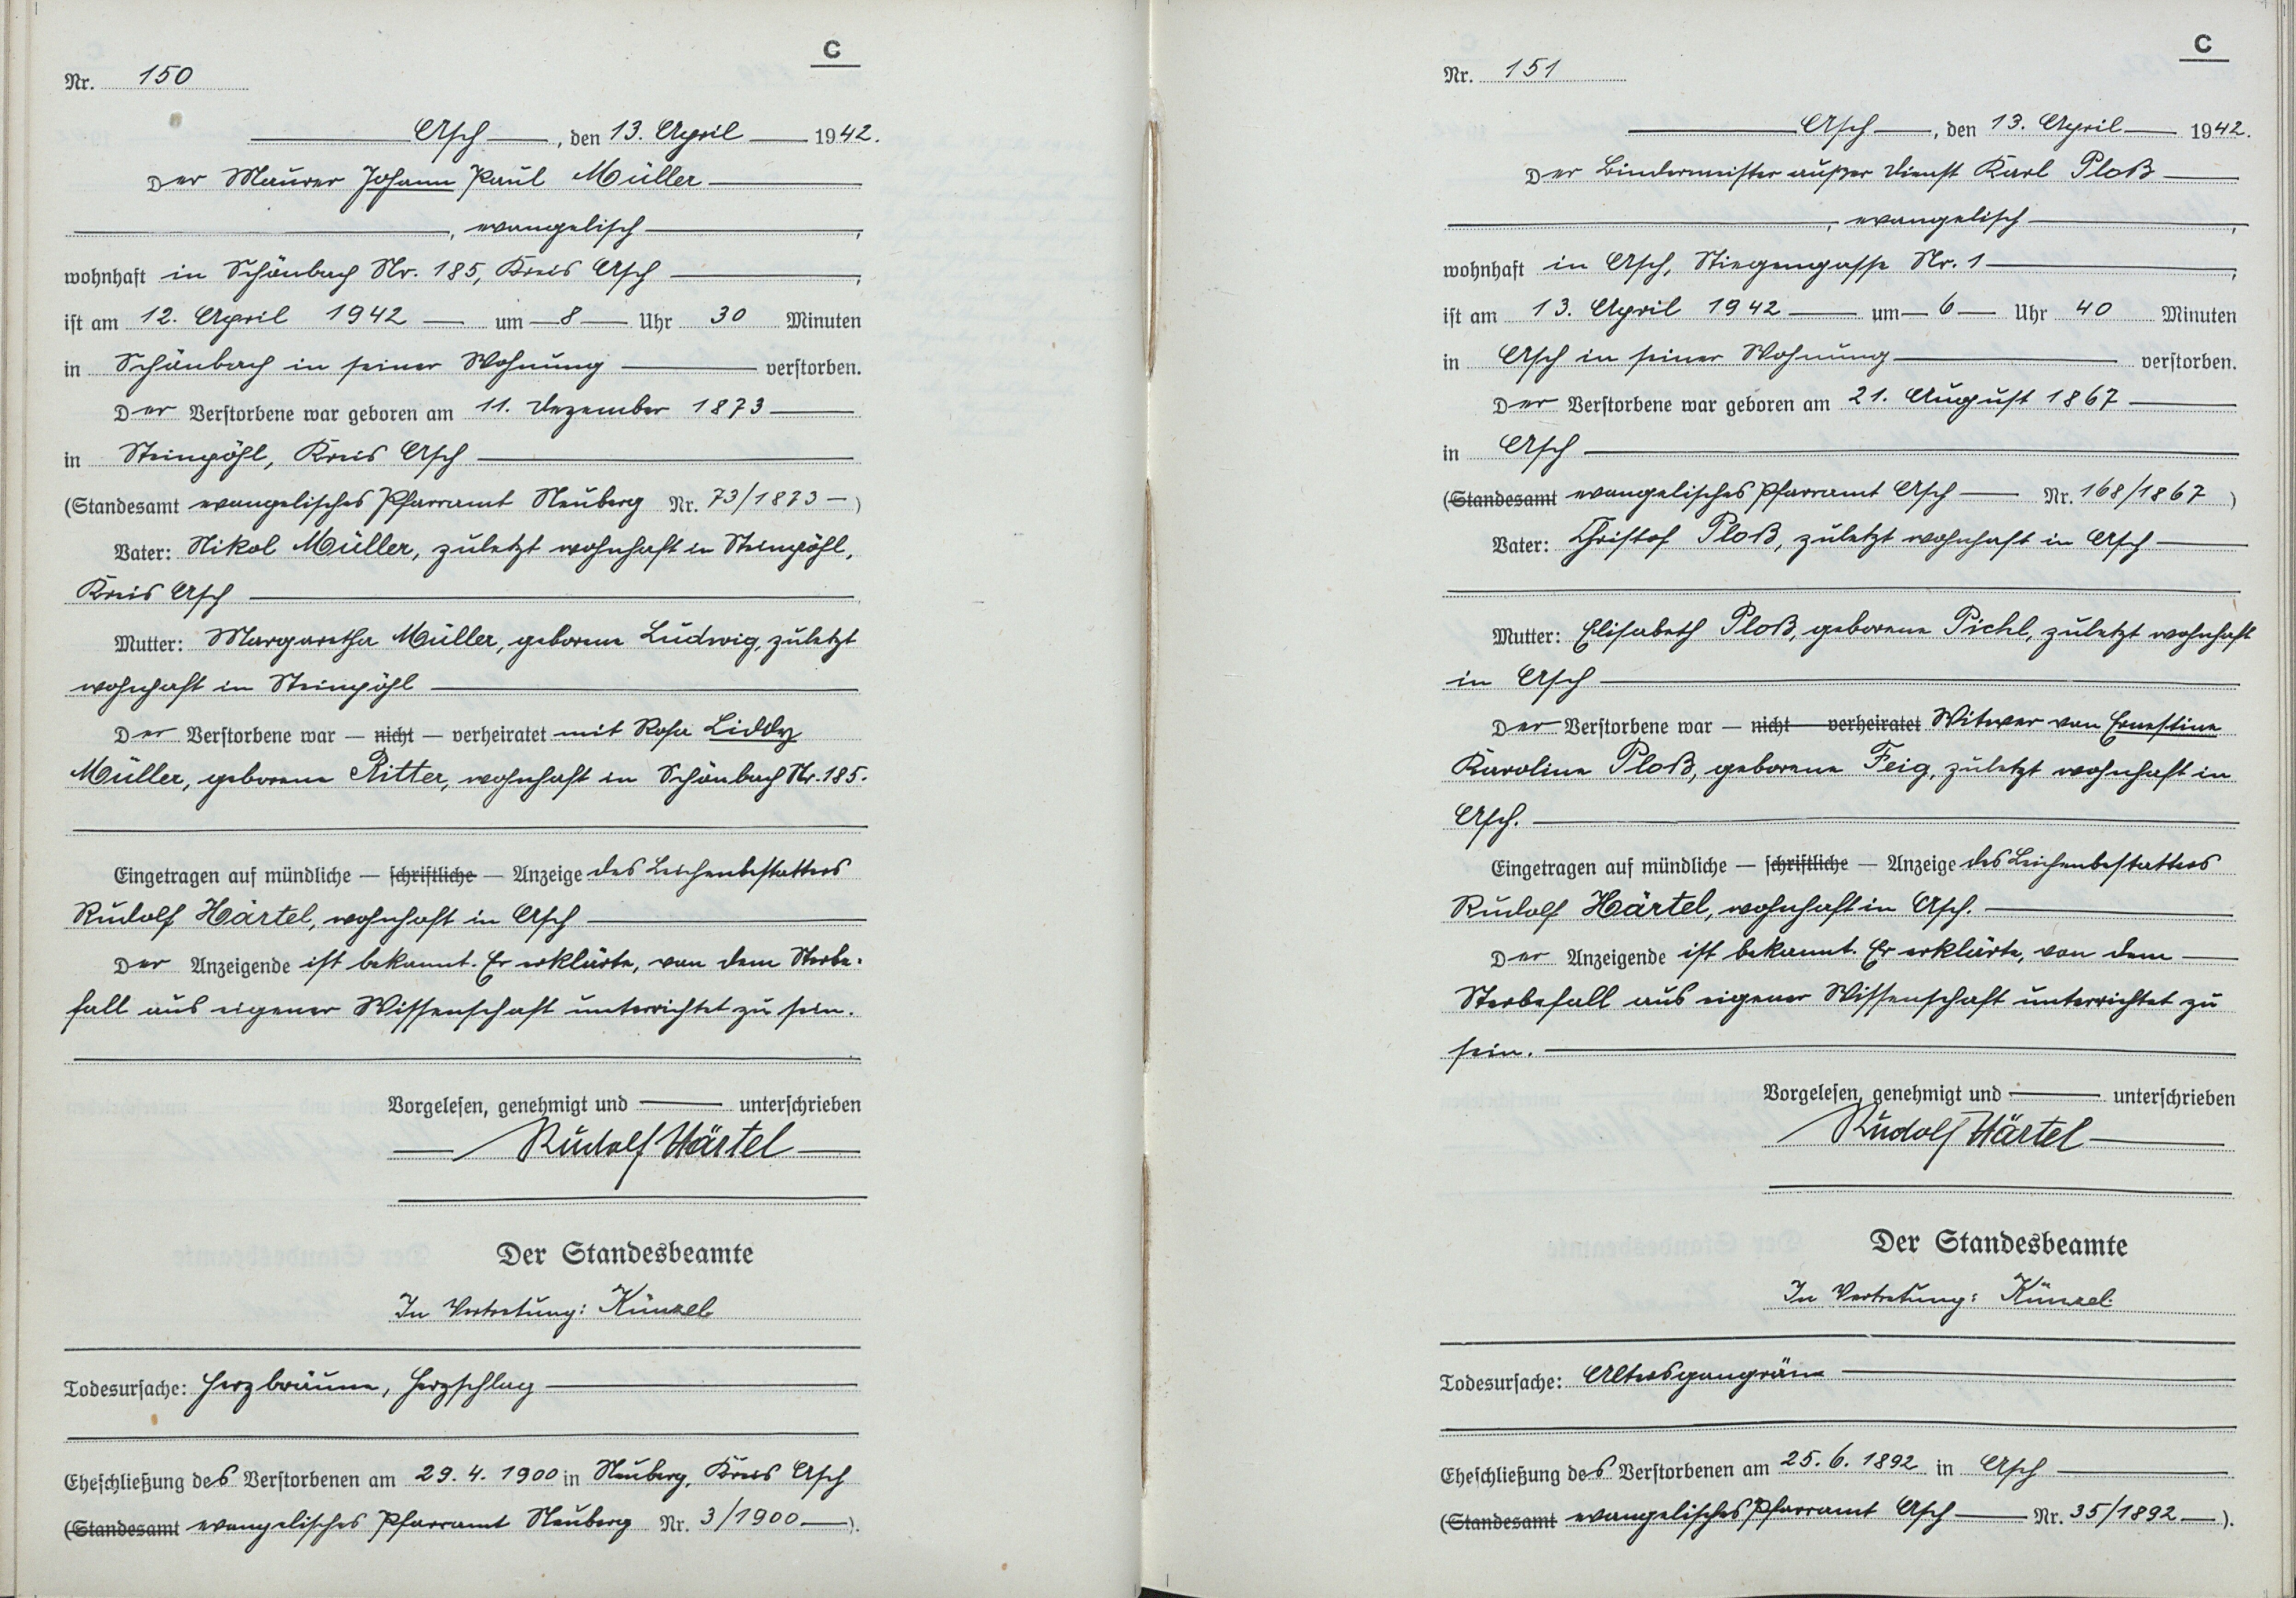 C
Nr. 150
Asch, den 13. April 1942.
Der Maurer Johann Paul Müller
, evangelisch,
wohnhaft in Schönbach Nr. 185, Kreis Asch,
ist am 12. April 1942 um 8 Uhr 30 Minuten
in Schönbach in seiner Wohnung verstorben.
Der Verstorbene war geboren am 11. Dezember 1873
in Steinpöhl, Kreis Asch
(Standesamt evangelisches Pfarramt Neuberg Nr. 73/1873 —)
Vater: Nikol Müller, zuletzt wohnhaft in Steinpöhl,
Kreis Asch
Mutter: Margaretha Müller, geborene Ludwig, zuletzt
wohnhaft in Steinpöhl
Der Verstorbene war — nicht — verheiratet mit Rosa Liddy
Müller, geborene Ritter, wohnhaft in Schönbach Nr. 185.
Eingetragen auf mündliche — schriftliche — Anzeige des Leichenbestatters
Rudolf Härtel, wohnhaft in Asch
Der Anzeigende ist bekannt. Er erklärte, von dem Sterbe-
fall aus eigener Wissenschaft unterrichtet zu sein.
Vorgelesen, genehmigt und — unterschrieben
Rudolf Härtel
Der Standesbeamte
In Vertretung: Künzel
Todesursache: Herzbräune, Herzschlag
Eheschließung des Verstorbenen am 29. 4. 1900 in Neuberg, Kreis Asch
(Standesamt evangelisches Pfarramt Neuberg Nr. 3/1900 —).
C
Nr. 151
Asch, den 13. April 1942.
Der Bindermeister außer Dienst Karl Ploß
, evangelisch,
wohnhaft in Asch, Stiegengasse Nr. 1,
ist am 13. April 1942 um 6 Uhr 40 Minuten
in Asch in seiner Wohnung verstorben.
Der Verstorbene war geboren am 21. August 1867
in Asch
(Standesamt evangelisches Pfarramt Asch — Nr. 168/1867)
Vater: Christof Ploß, zuletzt wohnhaft in Asch
Mutter: Elisabeth Ploß, geborene Pichl, zuletzt wohnhaft
in Asch
Der Verstorbene war — nicht — verheiratet Witwer von Ernestine
Karoline Ploß, geborene Feig, zuletzt wohnhaft in
Asch.
Eingetragen auf mündliche — schriftliche — Anzeige des Leichenbestatters
Rudolf Härtel, wohnhaft in Asch.
Der Anzeigende ist bekannt. Er erklärte, von dem
Sterbefall aus eigener Wissenschaft unterrichtet zu
sein.
Vorgelesen, genehmigt und — unterschrieben
Rudolf Härtel
Der Standesbeamte
In Vertretung: Künzel
Todesursache: Altersgangräne
Eheschließung des Verstorbenen am 25. 6. 1892 in Asch
(Standesamt evangelisches Pfarramt Asch — Nr. 35/1892 —).